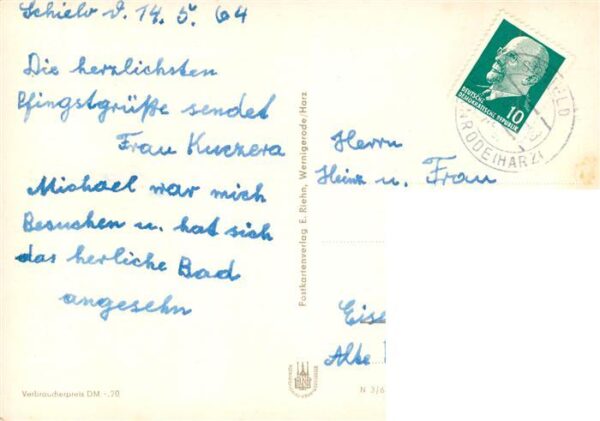 Schielo d. 14. 5. 64
Die herzlichsten
Pfingstgrüße sendet
Frau Kuczera
Michael war mich
Besuchen u. hat sich
das herliche Bad
angesehn
Verbraucherpreis DM -.20
Postkartenverlag E. Riehn, Wernigerode/Harz
N 3/6
DEUTSCHE
DEMOKRATISCHE REPUBLIK
10
RODE(HARZ)
Herrn
Heinz u. Frau
Eise
Alte